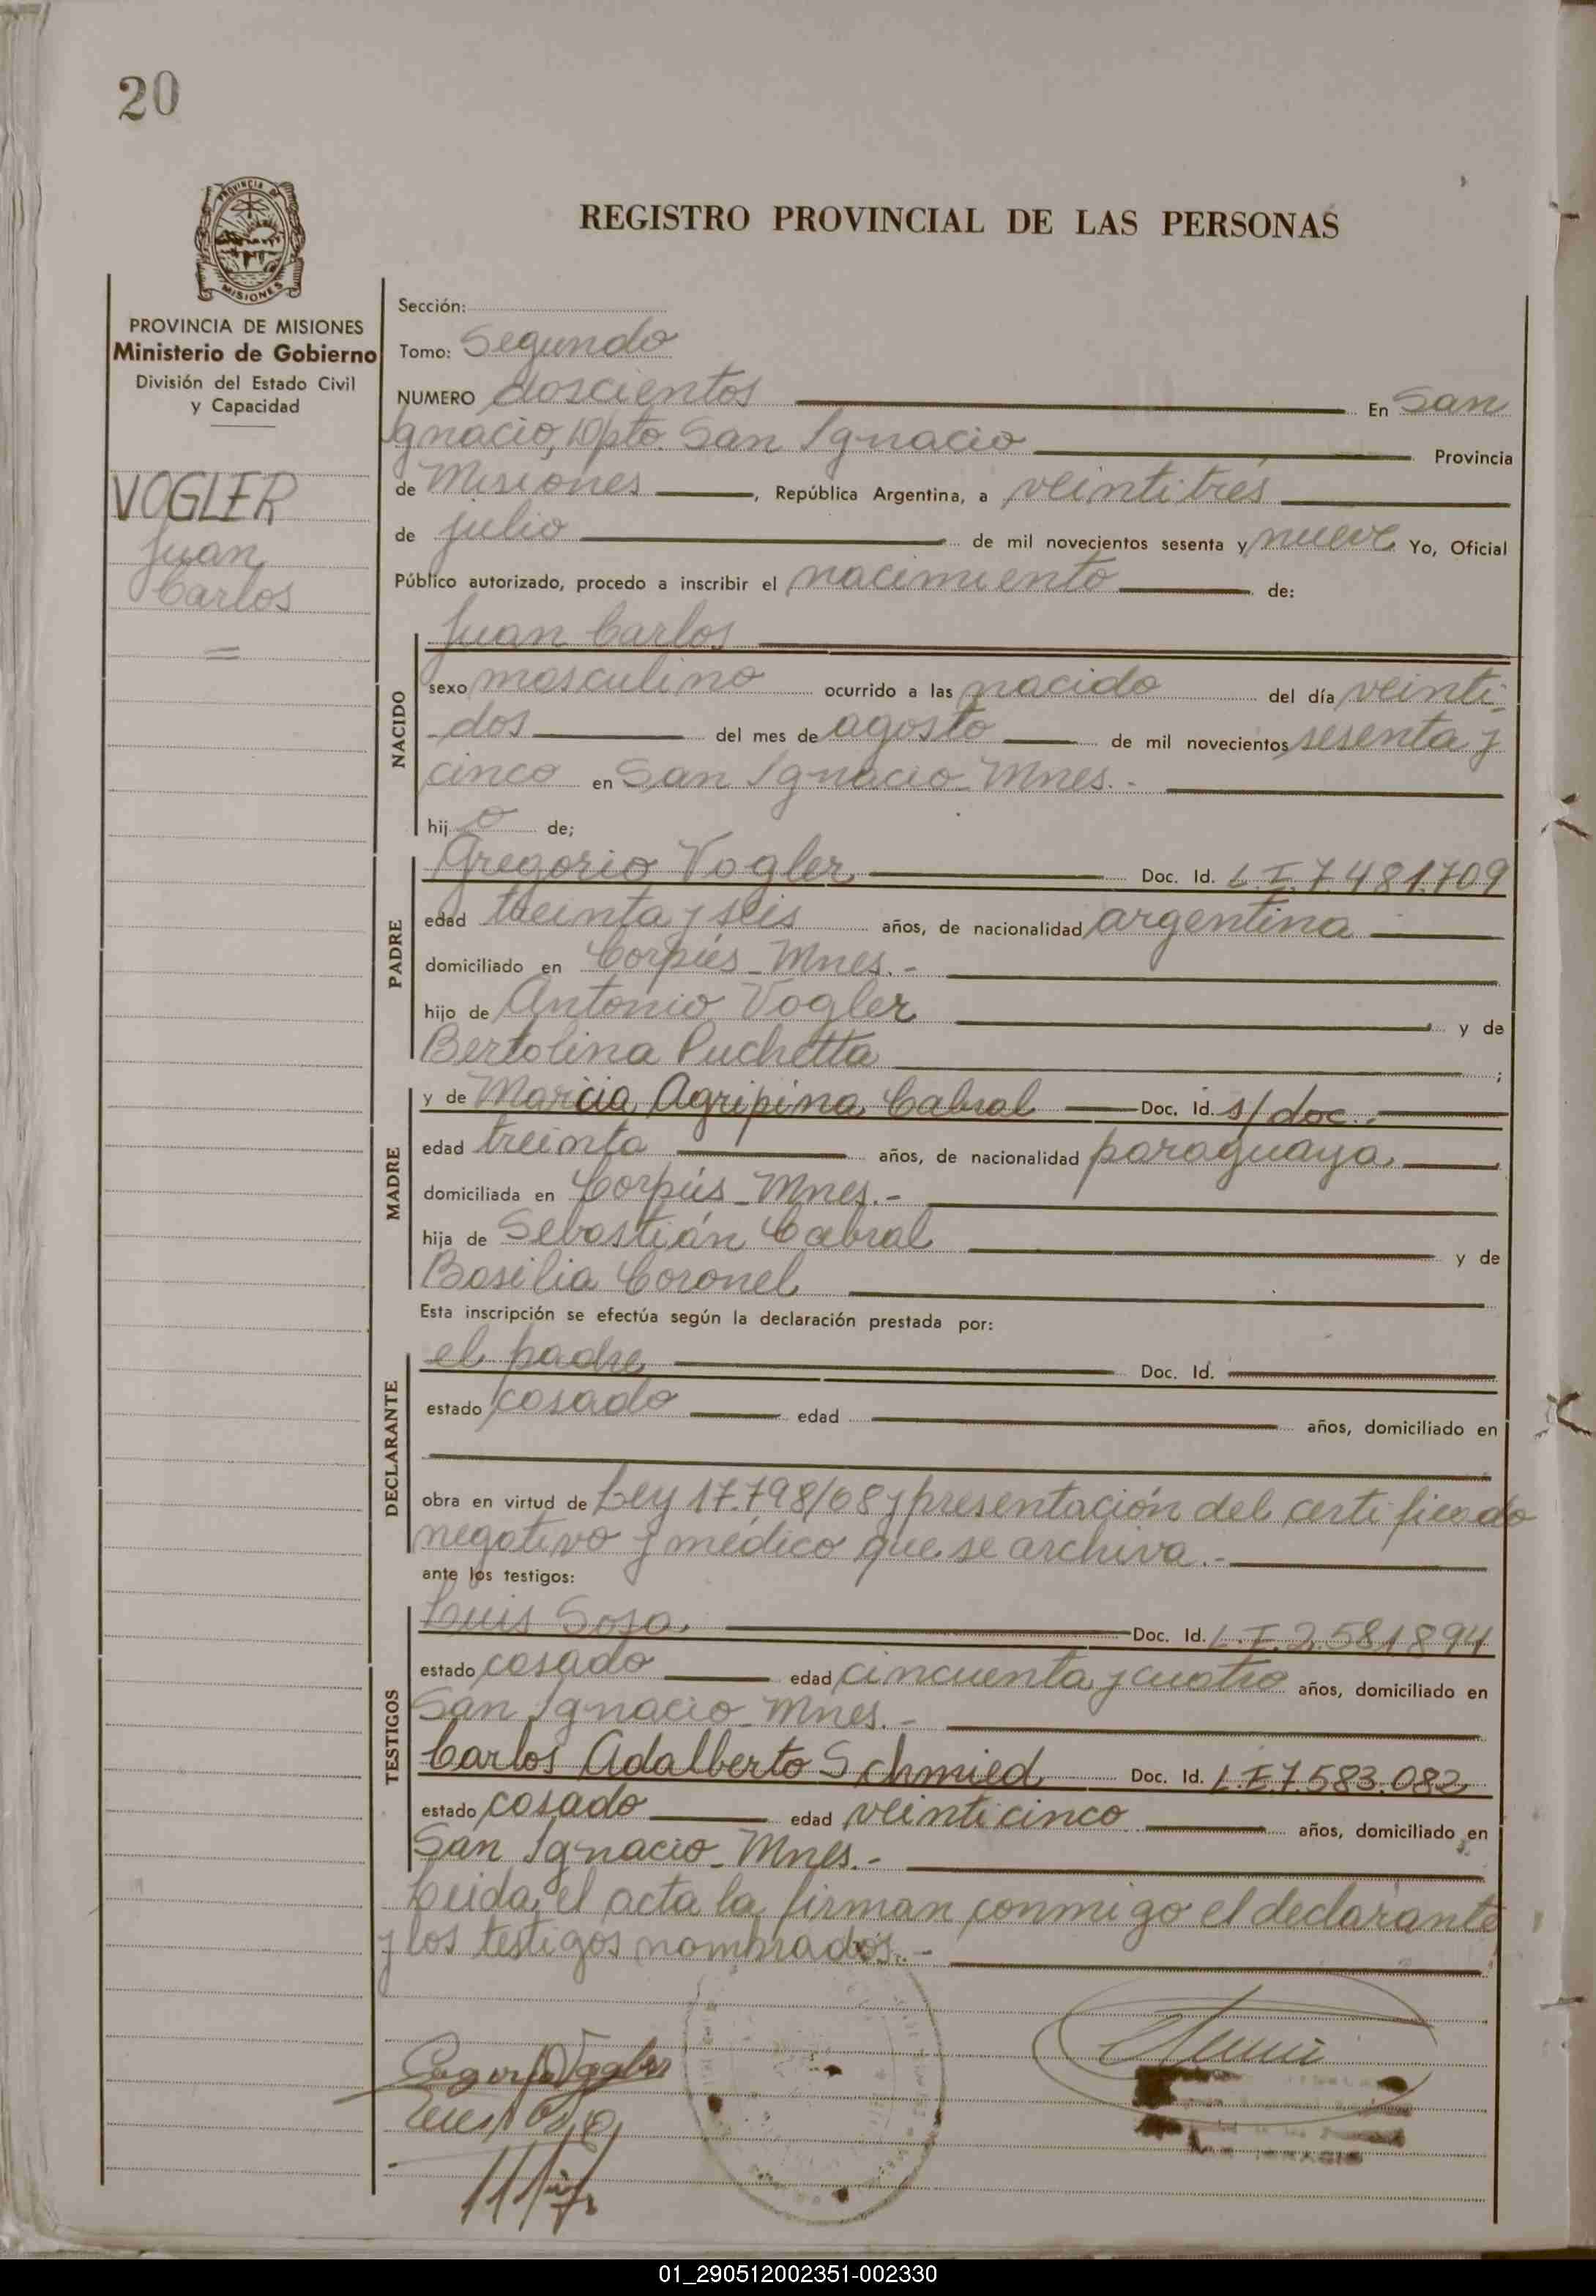 20
PROVINCIA DE
MISIONES
REGISTRO PROVINCIAL DE LAS PERSONAS
PROVINCIA DE MISIONES
Ministerio de Gobierno
División del Estado Civil
y Capacidad
VOGLER
Juan
Carlos
Sección:
Tomo: Segundo
NUMERO doscientos En San
Ignacio, Dpto. San Ignacio Provincia
de Misiones, República Argentina, a veintitrés
de julio de mil novecientos sesenta y nueve Yo, Oficial
Público autorizado, procedo a inscribir el nacimiento de:
NACIDO
Juan Carlos
sexo masculino ocurrido a las nacido del día veinti-
dos del mes de agosto de mil novecientos sesenta y
cinco en San Ignacio - Mnes.-
hij o de;
PADRE
Gregorio Vogler Doc. Id. L.I.7.481.709
edad treinta y seis años, de nacionalidad argentina
domiciliado en Corpús - Mnes.-
hijo de Antonio Vogler y de
Bertolina Puchetta ;
MADRE
y de Marcia Agripina Cabral Doc. Id. s/doc.-
edad treinta años, de nacionalidad paraguaya
domiciliada en Corpús - Mnes.-
hija de Sebastián Cabral y de
Basilia Coronel
Esta inscripción se efectúa según la declaración prestada por:
DECLARANTE
el padre Doc. Id.
estado casado edad años, domiciliado en
obra en virtud de Ley 17.798/68 y presentación del certificado
negativo y médico que se archiva.-
ante los testigos:
TESTIGOS
Luis Sosa Doc. Id. L.I.2.581.894
estado casado edad cincuenta y cuatro años, domiciliado en
San Ignacio - Mnes.-
Carlos Adalberto Schmied Doc. Id. L.I.7.583.082
estado casado edad veinticinco años, domiciliado en
San Ignacio - Mnes.-
Leida el acta la firman conmigo el declarante
y los testigos nombrados.-
01_290512002351-002330